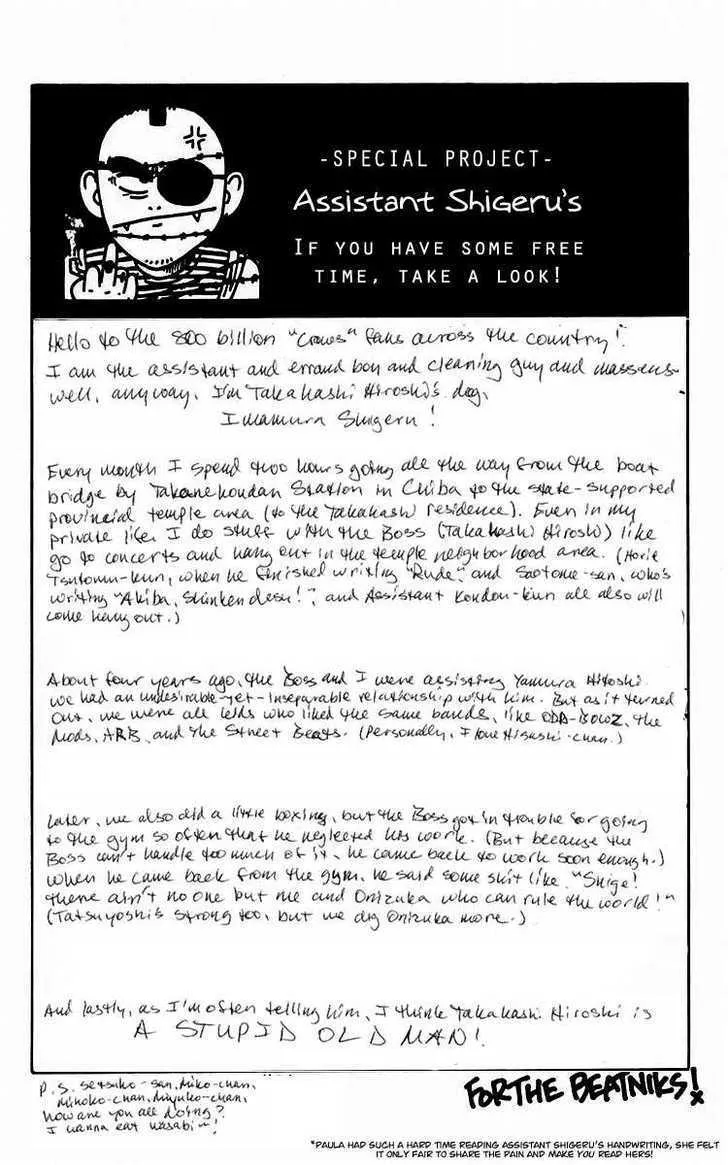 -SPECIAL PROJECT-
Assistant Shigeru's
IF YOU HAVE SOME FREE
TIME, TAKE A LOOK!
Hello to the 800 billion "Crows" fans across the country!
I am the assistant and errand boy and cleaning guy and masseus-
well, anyway, I'm Takahashi Hiroshi's dog,
Imamura Shigeru!
Every month I spend two hours going all the way from the boat
bridge by Takanekoudan Station in Chiba to the state-supported
provincial temple area (to the Takahashi residence). Even in my
private life, I do stuff with the Boss (Takahashi Hiroshi) like
go to concerts and hang out in the temple neighborhood area. (Horie
Tsutomu-kun, when he finished writing "Rude", and Saotome-san, who's
writing "Akiba, Shinken desu!", and Assistant Kondou-kun all also will
come hang out.)
About four years ago, the Boss and I were assisting Yamura Hitoshi.
We had an undesirable-yet-inseparable relationship with him. But as it turned
out, we were all kids who liked the same bands, like ODA-BOWZ, the
Mods, ARB, and the Street Beats. (Personally, I love Hisashi-chan.)
Later, we also did a little boxing, but the Boss got in trouble for going
to the gym so often that he neglected his work. (But because the
Boss can't handle too much of it, he came back to work soon enough.)
When he came back from the gym, he said some shit like, "Shige!
there ain't no one but me and Onizuka who can rule the world!"
(Tatsuyoshi's strong too, but we dig Onizuka more.)
And lastly, as I'm often telling him, I think Takahashi Hiroshi is
A STUPID OLD MAN!
P.S. Setsuko-san, Miko-chan,
Mihoko-chan, Miyuko-chan,
how are you all doing?
I wanna eat wasabi~!
FOR THE BEATNIKS!
*PAULA HAD SUCH A HARD TIME READING ASSISTANT SHIGERU'S HANDWRITING, SHE FELT
IT ONLY FAIR TO SHARE THE PAIN AND MAKE YOU READ HERS!